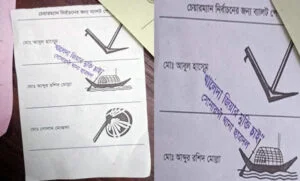 চেয়ারম্যান নির্বাচনের জন্য ব্যালট
মোঃ আবুল হাসেম
মোঃ আব্দুর রশিদ মোল্লা
মোঃ গোলাম মোস্তফা
খালেদা জিয়ার মুক্তি চাই
চেয়ারম্যান নির্বাচনের জন্য ব্যালট
মোঃ আবুল হাসেম
"খালেদা জিয়ার মুক্তি চাই"
মোঃ আব্দুর রশিদ মোল্লা